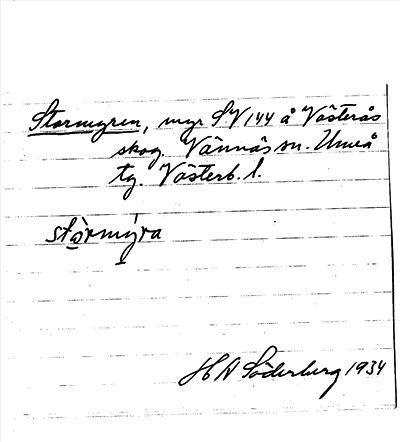 Stormyren, myr S.V 144 å Västerås
skog. Vännäs sn. Umeå
tg. Västerb. l.
stårmýra
H A Söderberg 1934